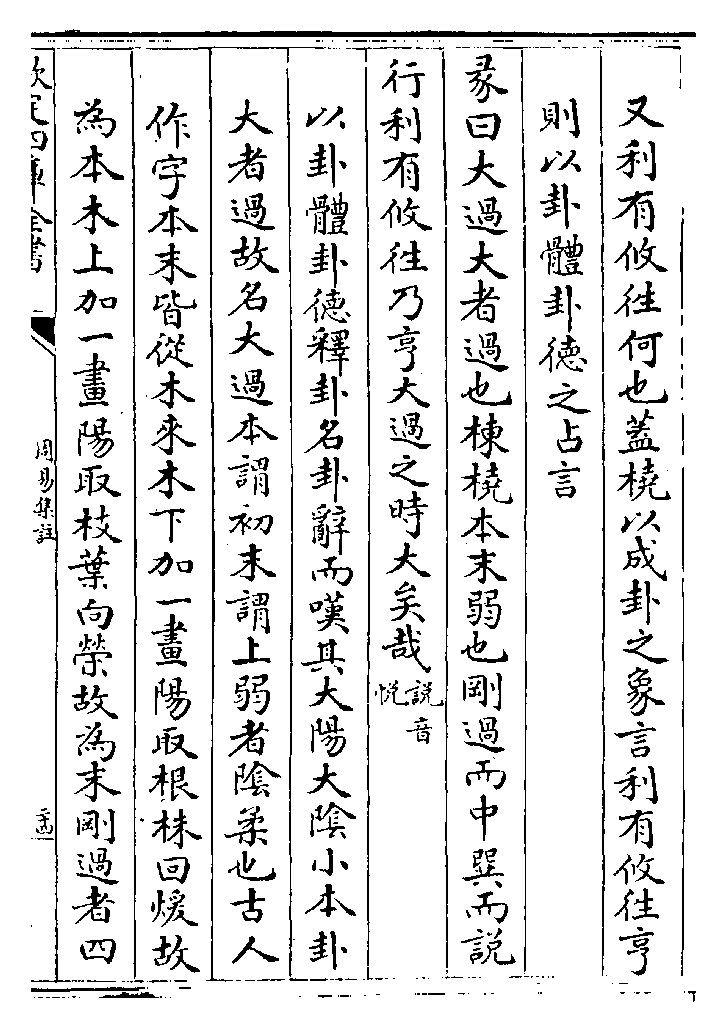 又利有攸往何也蓋橈以成卦之象言利有攸往亨
則以卦體卦德之占言
彖曰大過大者過也棟橈本末弱也剛過而中巽而說
行利有攸往乃亨大過之時大矣哉說音悅
以卦體卦德釋卦名卦辭而嘆其大陽大陰小本卦
大者過故名大過本謂初末謂上弱者陰柔也古人
作字本末皆從木來木下加一畫陽取根株回煖故
為本木上加一畫陽取枝葉向榮故為末剛過者四
欽定四庫全書
周易集註